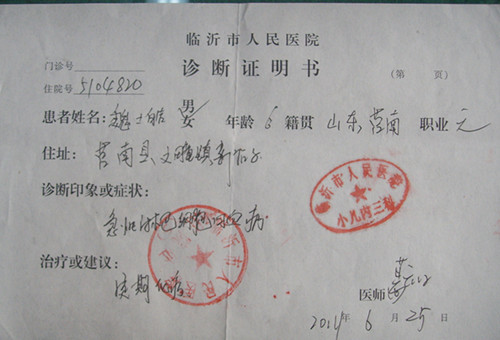 临沂市人民医院
诊断证明书
门诊号
住院号 5104820
(第 页)
患者姓名: 魏士皓 男 女 年龄 6 籍贯 山东莒南 职业 无
住址: 莒南县文疃镇
诊断印象或症状:
急性淋巴细胞白血病
临沂市人民医院
小儿内三科
治疗或建议:
临沂市人民医院
医师
2014年6月25日